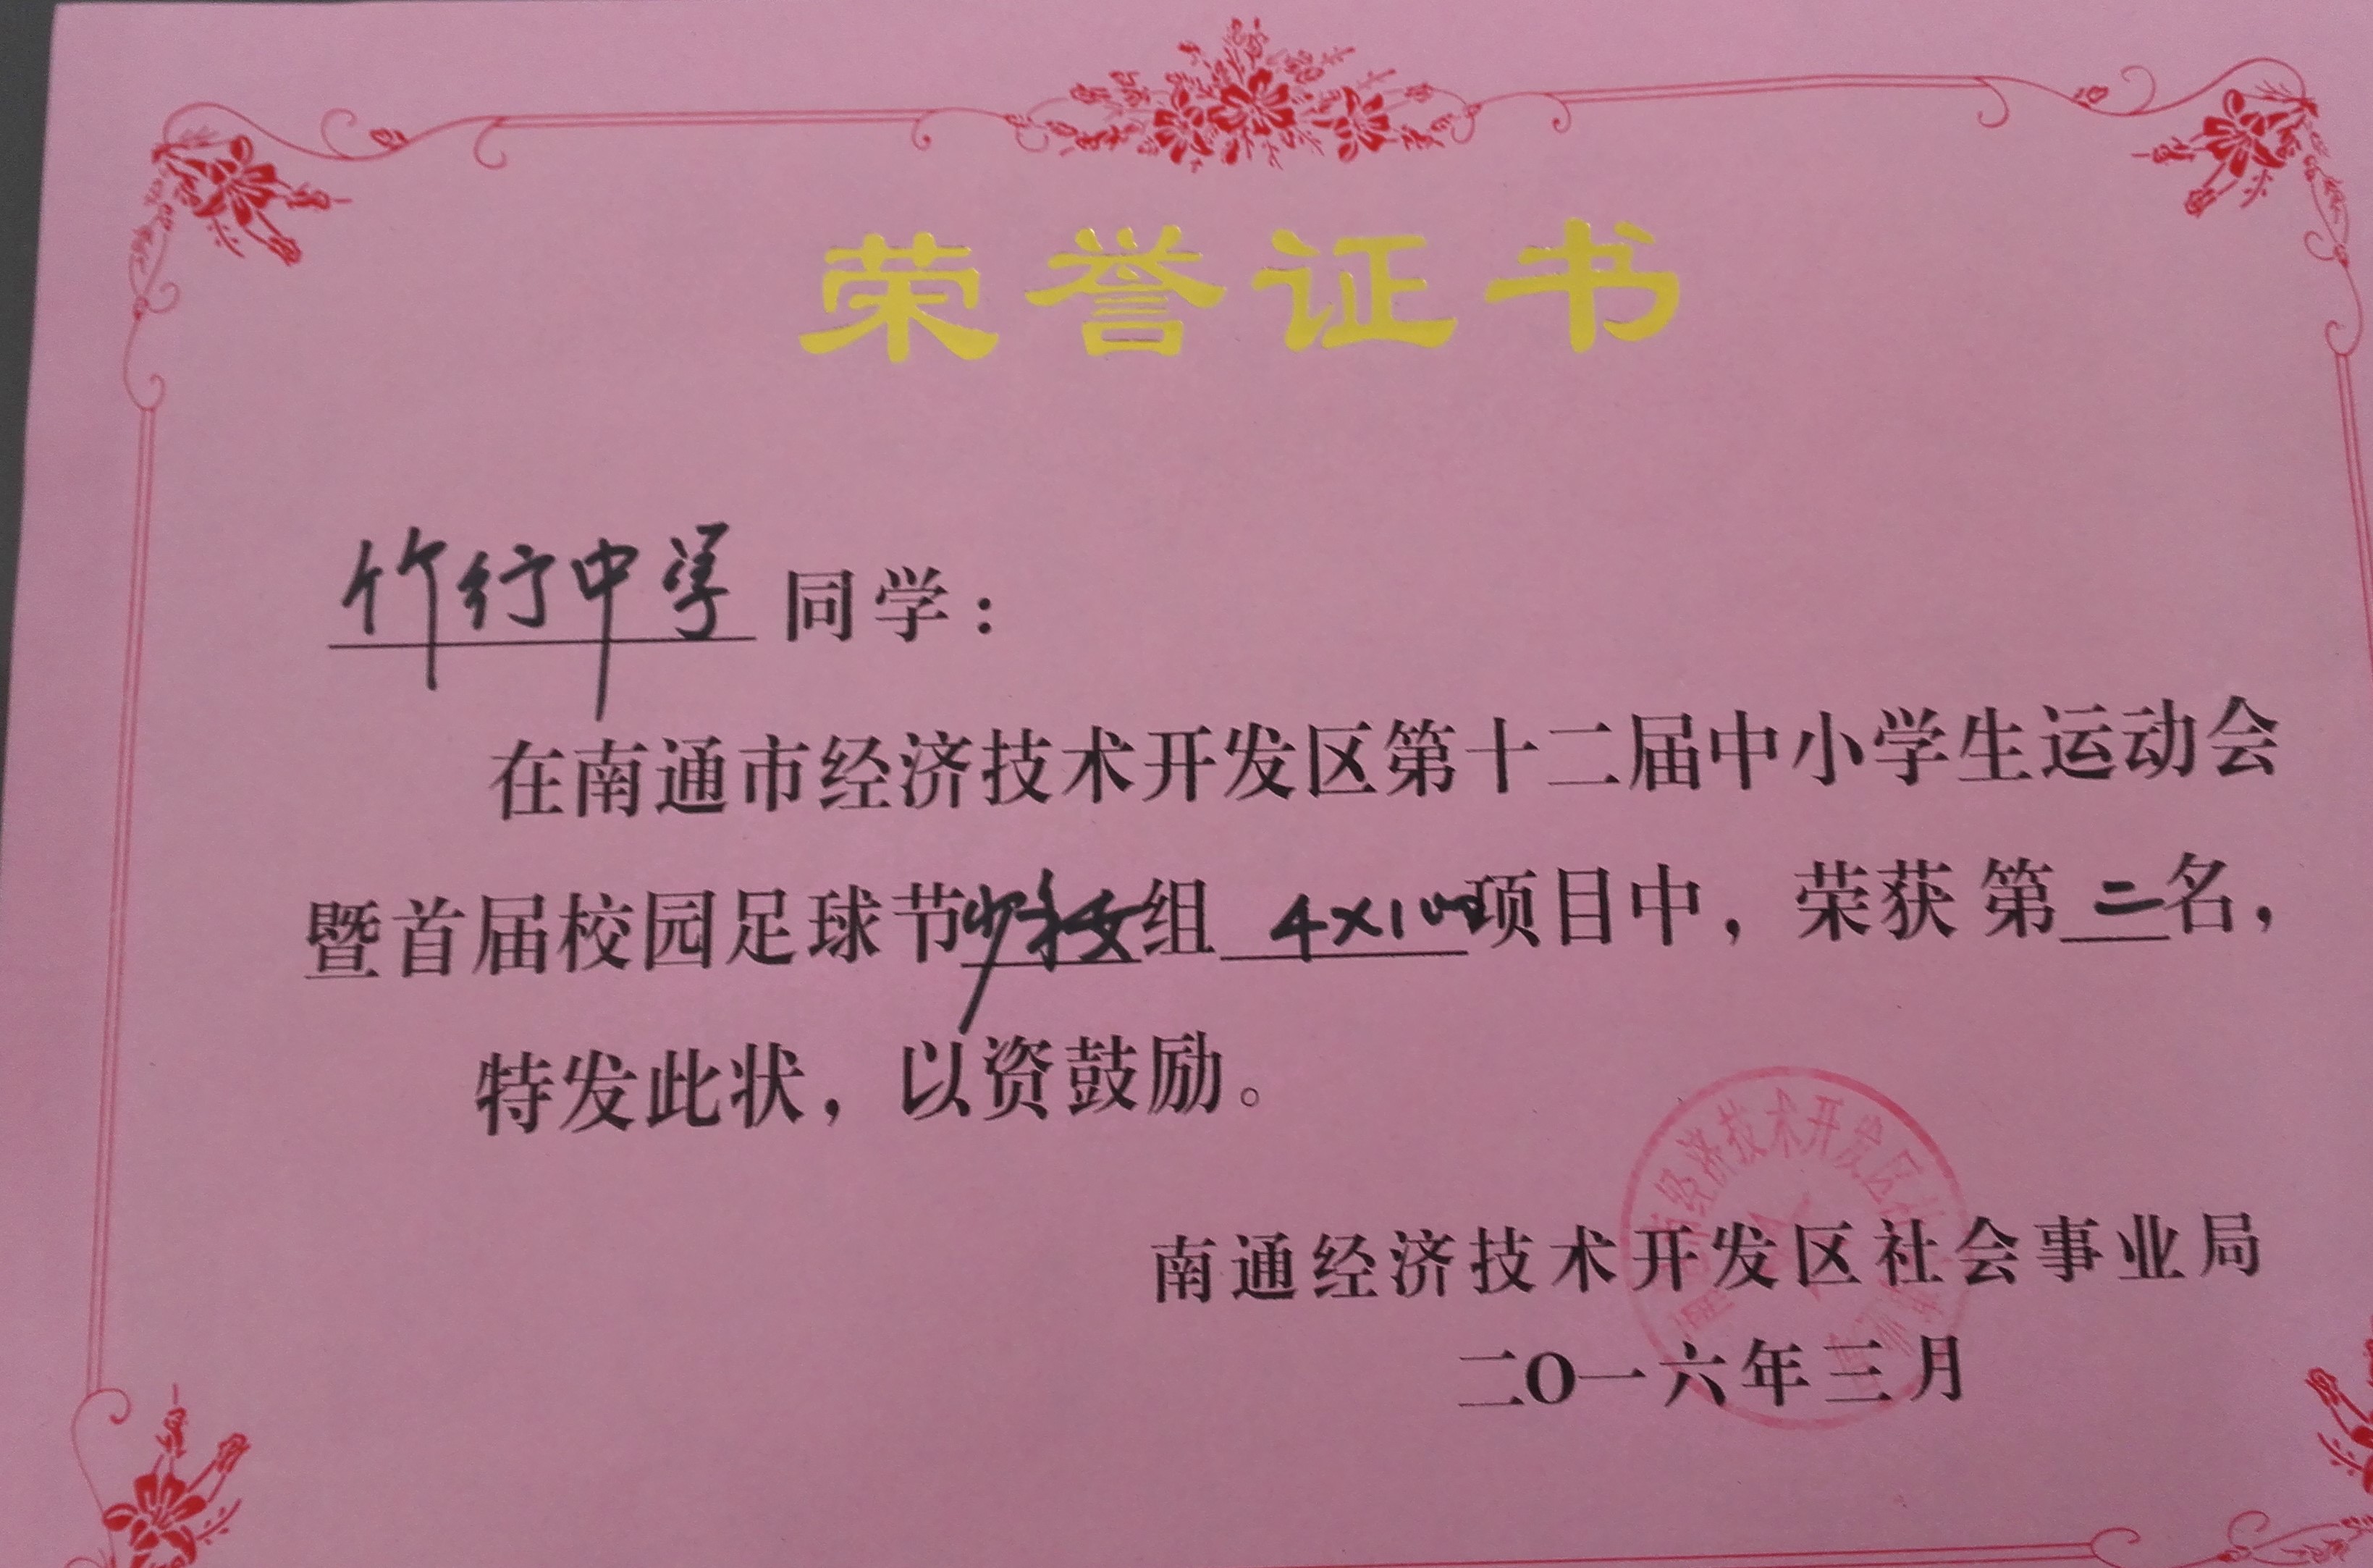 荣誉证书
竹行中学 同学：
在南通市经济技术开发区第十二届中小学生运动会
暨首届校园足球节少年女组 4×100项目中，荣获 第二名，
特发此状，以资鼓励。
经济技术开发区社
南通经济技术开发区社会事业局
二O一六年三月